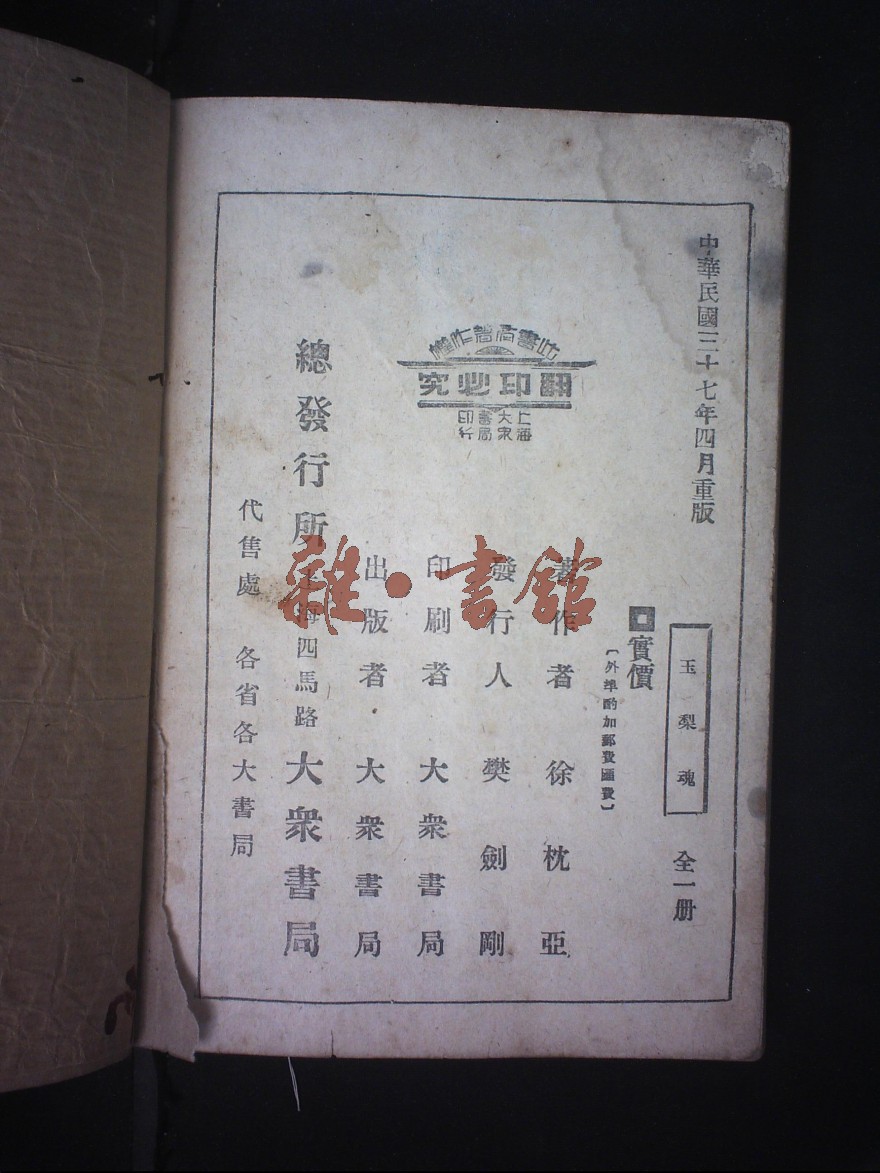 中華民國三十七年四月重版
玉梨魂 全一册
實價
〔外埠酌加郵費匯費〕
著作者 徐枕亞
發行人 樊劍剛
印刷者 大衆書局
出版者 大衆書局
總發行所 上海四馬路 大衆書局
代售處 各省各大書局
此書有著作權
翻印必究
上海大衆書局印行
雜·書館